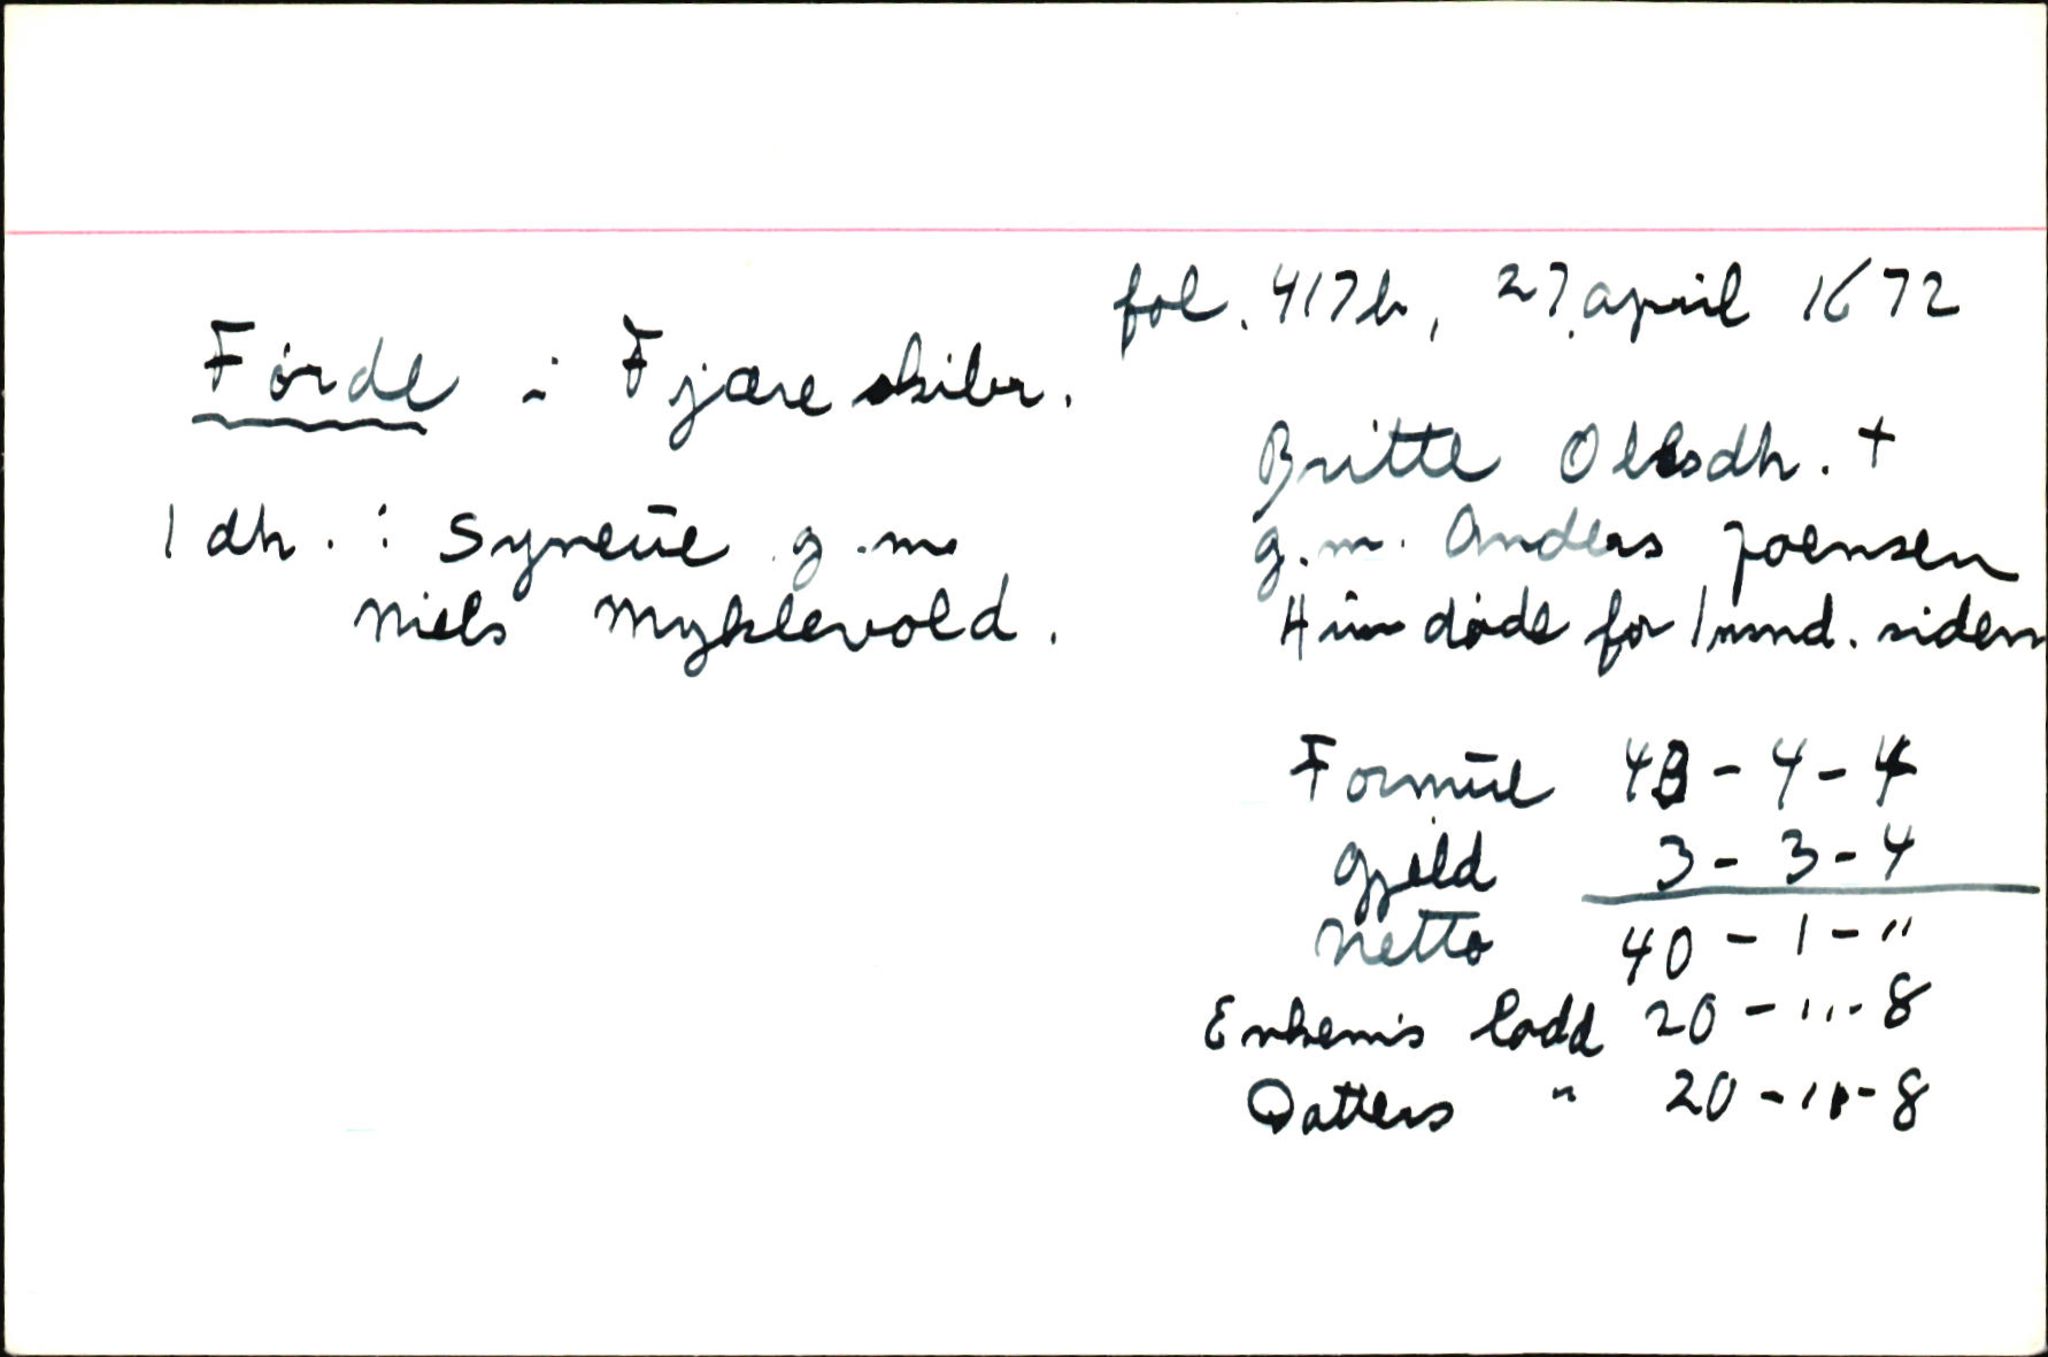 fol. 417b, 27. april 1672
Førde i Fjære skibr.
Britte Olesdh. +
g.m. Anders Joensen
Hun døde for 1 mnd. siden
1 dh. : Syneue g.m.
Niels Myklevold.
Formue 43 - 4 - 4
Gjeld 3 - 3 - 4
Netto 40 - 1 - "
Enkem's lodd 20 - " - 8
Datters " 20 - " - 8